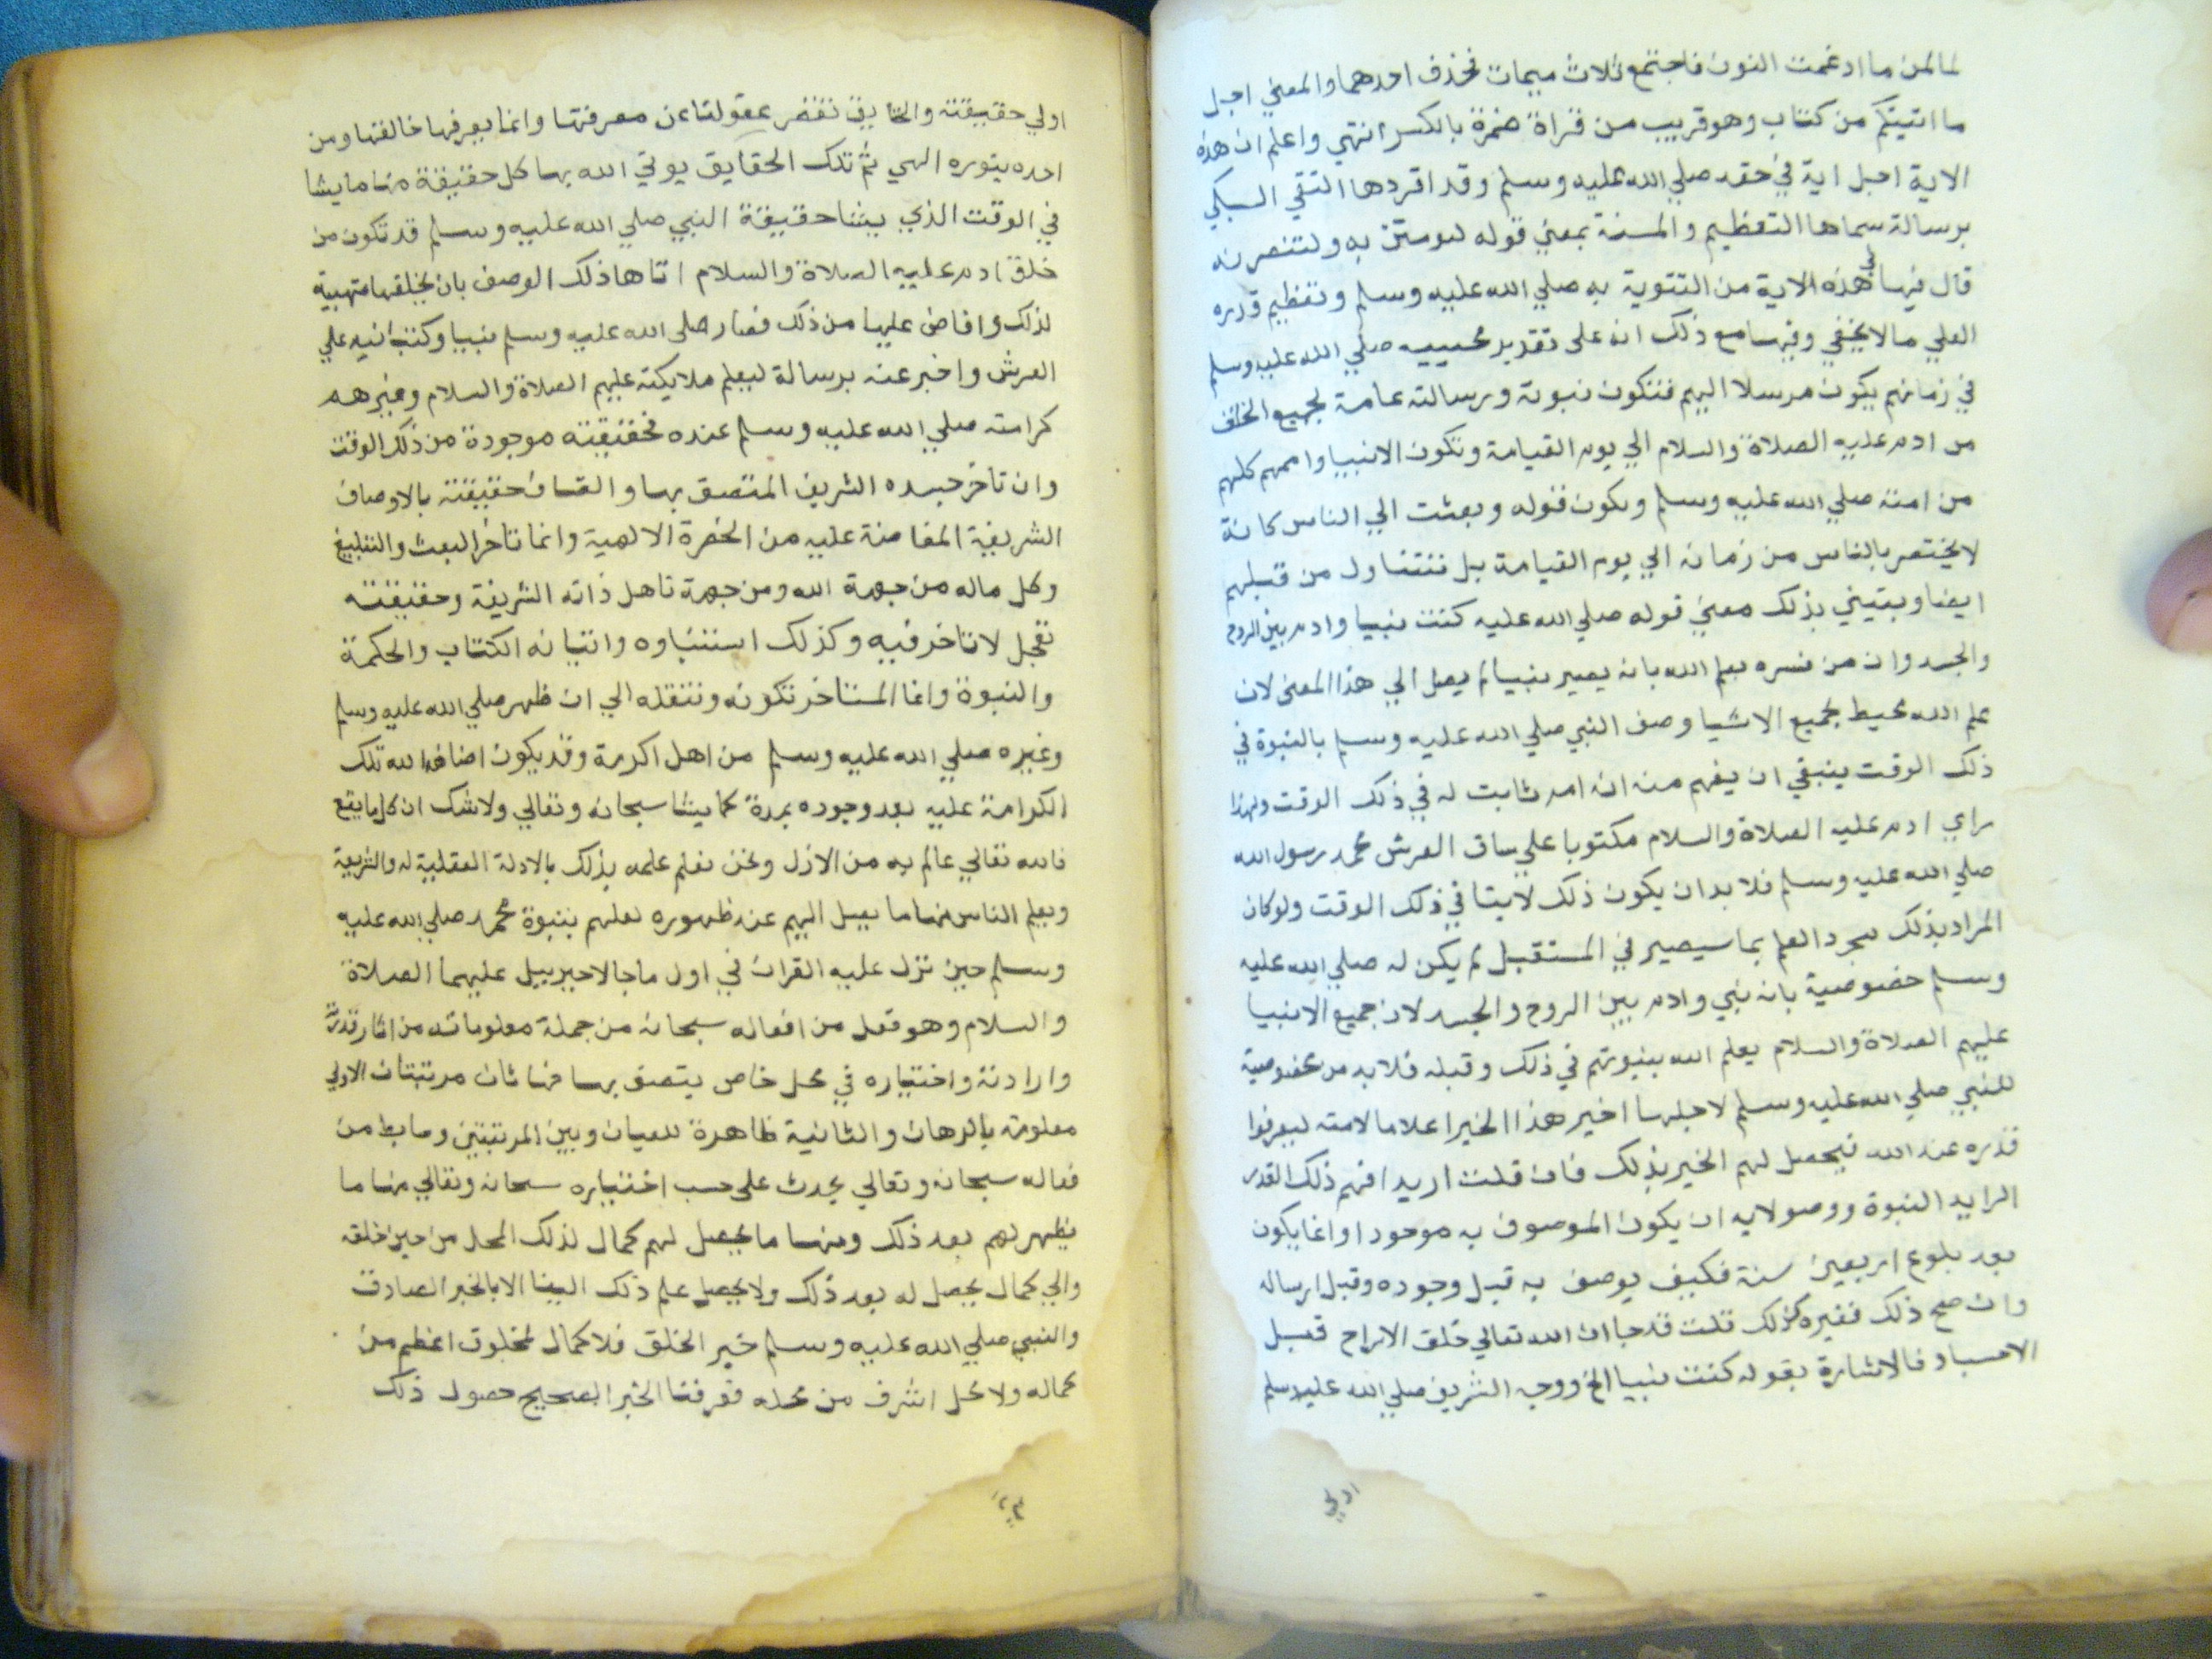 لمالمن ما ادغمت النون فاجتمع ثلاث ميمات نحذف احدهما والمعني اجل
ما اتيتكم من كتاب وهو قريب من قراة حمزة بالكسر انتهي واعلم ان هذه
الاية اجل اية في حقه صلي الله عليه وسلم وقد افردها التقي السبكي
برسالة سماها التعظيم والمنة بمعني قوله لتومنن به ولتنصرنه
قال فيها في هذه الاية من التنوية به صلي الله عليه وسلم وتعظيم قدره
العلي ما لا يخفي وفيها مع ذلك انه على تقدير مجييه صلي الله عليه وسلم
في زمانهم يكون مرسلا اليهم فتكون نبوته ورسالته عامة لجميع الخلق
من ادم عليه الصلاة والسلام الي يوم القيامة وتكون الانبيا واممهم كلهم
من امته صلي الله عليه وسلم ويكون قوله وبعثت الي الناس كافة
لا يختص بالناس من زمانه الي يوم القيامة بل تتناول من قبلهم
ايضا ويتبين بذلك معني قوله صلي الله عليه كنت نبيا وادم بين الروح
والجسد وان من فسره بعلم الله بانه يصير نبيا لم يصل الي هذا المعنى لان
علم الله محيط بجميع الاشيا وصف النبي صلي الله عليه وسلم بالنبوة في
ذلك الوقت ينبغي ان يفهم منه انه امر ثابت له في ذلك الوقت ولهذا
راي ادم عليه الصلاة والسلام مكتوبا علي ساق العرش محمد رسول الله
صلي الله عليه وسلم فلا بد ان يكون ذلك لايتا في ذلك الوقت ولو كان
المراد بذلك مجرد العلم بما سيصير في المستقبل لم يكن له صلي الله عليه
وسلم خصوصية بانه نبي وادم بين الروح والجسد لان جميع الانبيا
عليهم الصلاة والسلام يعلم الله بنبوتهم في ذلك وقبله فلا بد من خصوصية
للنبي صلي الله عليه وسلم لاجلها اخبر هذا الخبر اعلاما لامته ليعرفوا
قدره عند الله فيحصل لهم الخير بذلك فان قلت اريد افهم ذلك القدر
الزايد النبوة ووصولايه ان يكون الموصوف به موجودا وانما يكون
بعد بلوغ اربعين سنة فكيف يوصف به قبل وجوده وقبل ارساله
وان صح ذلك فغيره كذلك قلت قد جا ان الله تعالي خلق الارواح قبل
الاجساد فالاشارة بقوله كنت نبيا الخ روحه الشريف صلي الله عليه وسلم
اولي
اولي حقيقته والحقايق تقصر عقولنا عن معرفتها وانما يعرفها خالقها ومن
امده بنوره الهي ثم تلك الحقايق يوتي الله بها كل حقيقة منها ما يشا
في الوقت الذي يشا حقيقة النبي صلي الله عليه وسلم قد تكون من
خلق ادم عليه الصلاة والسلام اتاها ذلك الوصف بان يخلقها متهيية
لذلك وافاض عليها من ذلك فصار صلى الله عليه وسلم نبيا وكتب اسمه علي
العرش واخبر عنه برسالة ليعلم ملايكته عليهم الصلاة والسلام وغيرهم
كرامته صلي الله عليه وسلم عنده فحقيقته موجودة من ذلك الوقت
وان تاخر جسده الشريف المتصف بها واتصاف حقيقته بالاوصاف
الشريفة المفاضة عليه من الحضرة الالهية وانما تاخر البعث والتبليغ
وكل ماله من جهة الله ومن جهة تاهل ذاته الشريفة وحقيقته
تعجل لا تاخر فيه وكذلك استنباوه واتيانه الكتاب والحكمة
والنبوة وانما المتاخر تكونه وتنقله الي ان ظهر صلي الله عليه وسلم
وغيره صلي الله عليه وسلم من اهل اكرمة وقد يكون اضافه الله تلك
الكرامة عليه بعد وجوده بمدة كما يشا سبحانه وتعالي ولا شك ان كل ما يقع
فالله تعالي عالم به من الازل ونحن نعلم علمه بذلك بالادلة العقلية له والشرعية
ويعلم الناس منها ما يصل اليهم عند ظهوره لعلهم بنبوة محمد صلي الله عليه
وسلم حين نزل عليه القران في اول ما جا لاجبرييل عليهما الصلاة
والسلام وهو فعل من افعاله سبحانه من جملة معلوماته من اثار قدرته
وارادته واختياره في محل خاص يتصف بها فها تان مرتبتان الاولي
معلومة بالبرهان والثانية ظاهرة للعيان وبين المرتبتين وسايط من
فعاله سبحانه وتعالي يحدث على حسب اختياره سبحانه وتعالي منها ما
يظهر لهم بعد ذلك ومنها ما يحصل لهم كمال لذلك المحل من حين خلقه
والي كمال يحصل له بعد ذلك ولا يحصل علم ذلك الينا الا بالخبر الصادق
والنبي صلي الله عليه وسلم خير الخلق فلا كمال لمخلوق اعظم من
كماله ولا محل اشرف من محله فعرفنا الخبر الصحيح حصول ذلك